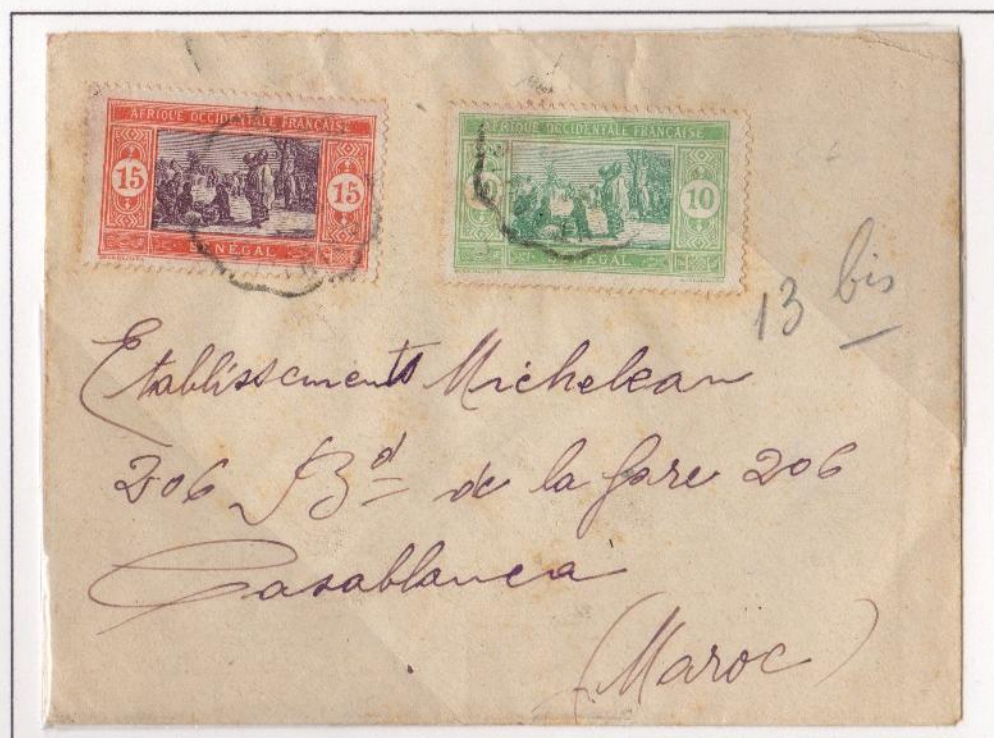 AFRIQUE OCCIDENTALE FRANÇAISE
15 15
SÉNÉGAL
AFRIQUE OCCIDENTALE FRANÇAISE
10 10
SÉNÉGAL
13 bis
Etablissements Michelean
206 Bd de la Gare 206
Casablanca
(Maroc)